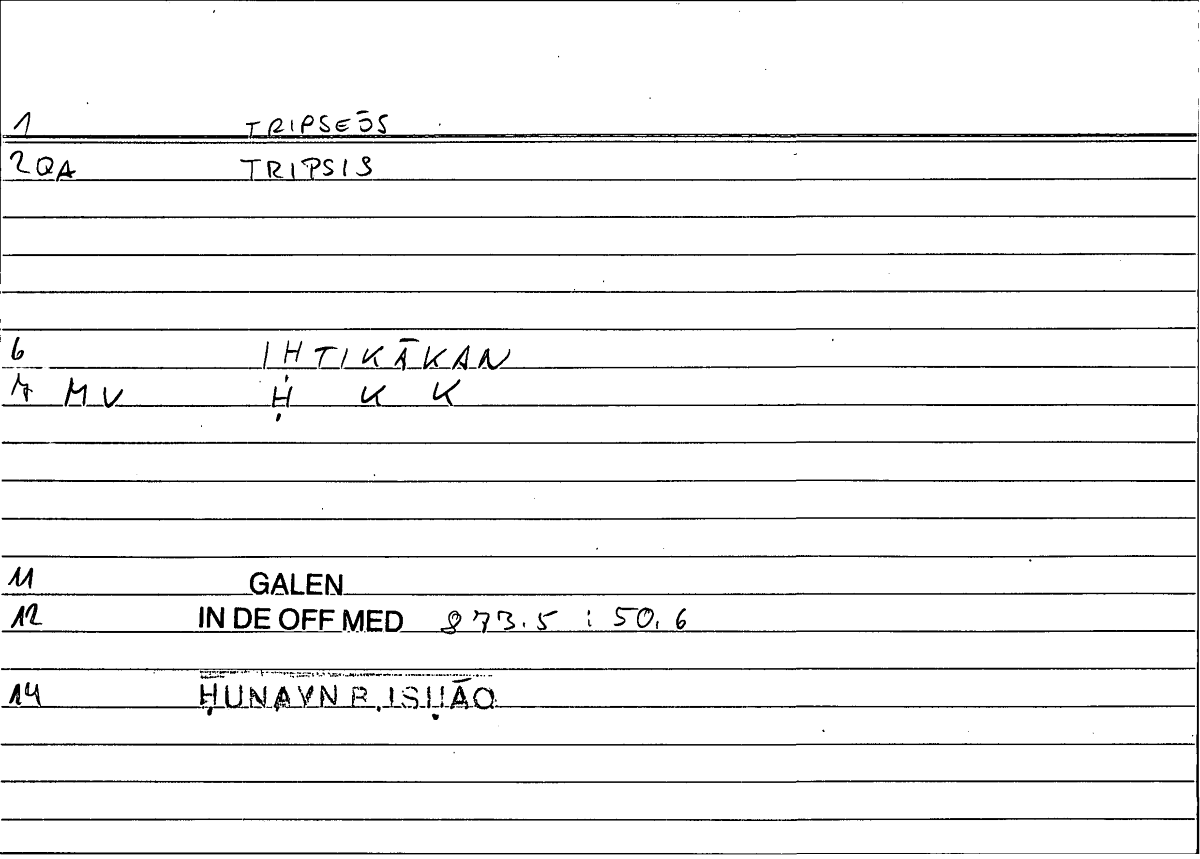 1 TRIPSEŌS
2 QA TRIPSIS
6 IḤTIKĀKAN
7 MV Ḥ K K
11 GALEN
12 IN DE OFF MED 873.5 : 50.6
14 ḤUNAYN B. ISḤĀQ